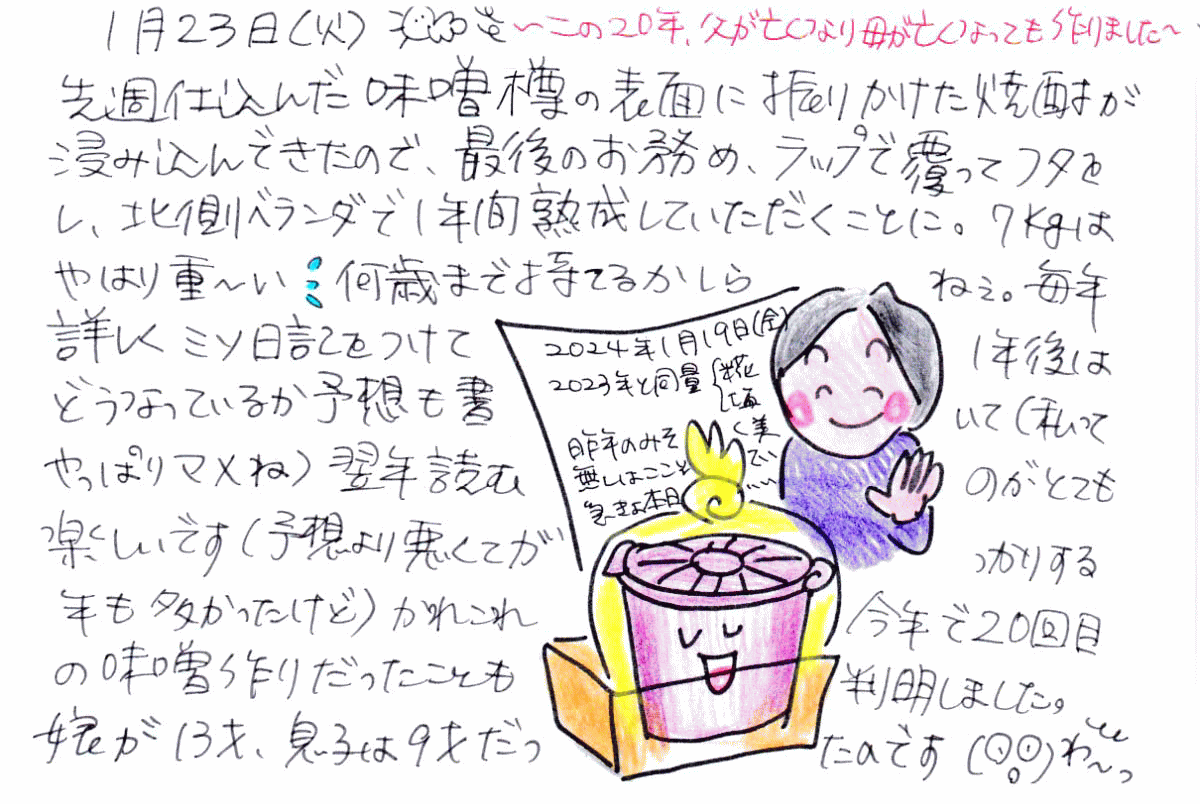 1月23日(火) 〜この20年、父が亡くなり母が亡くなっても作りました〜
先週仕込んだ味噌樽の表面に振りかけた焼酎が
浸み込んできたので、最後のお務め、ラップで覆ってフタを
し、北側ベランダで1年間熟成していただくことに。7Kgは
やはり重〜い 何歳まで持てるかしら ねぇ。毎年
詳しくミソ日記をつけて 1年後は
どうなっているか予想も書 いて(私って
やっぱりマメね)翌年読む のがとても
楽しいです(予想より悪くてが っかりする
年も多かったけど)かれこれ 今年で20回目
の味噌作りだったことも 判明しました。
娘が13才、息子は9才だっ たのです(◎◎)わ〜っ
2024年1月19日(金)
2023年と同量 糀
塩
昨年のみそ
無しはこと
急きょ本日